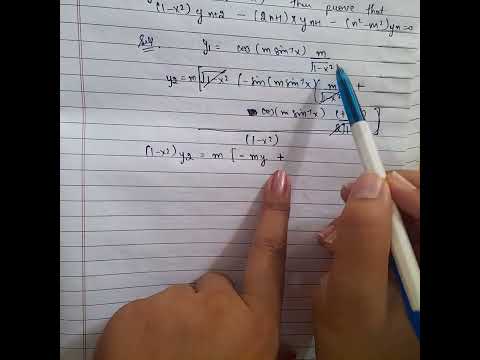 (1-x²) y n+2 - (2n+1) x yn+1 - (n²-m²) yn = 0
then prove that
Solⁿ. y₁ = cos (m sin⁻¹x) m/√1-x²
y2 = m [√1-x² (-sin (m sin⁻¹x) (m/√1-x²) +
cos (m sin⁻¹x)
(1-x²)
(1-x²) y2 = m [- my +